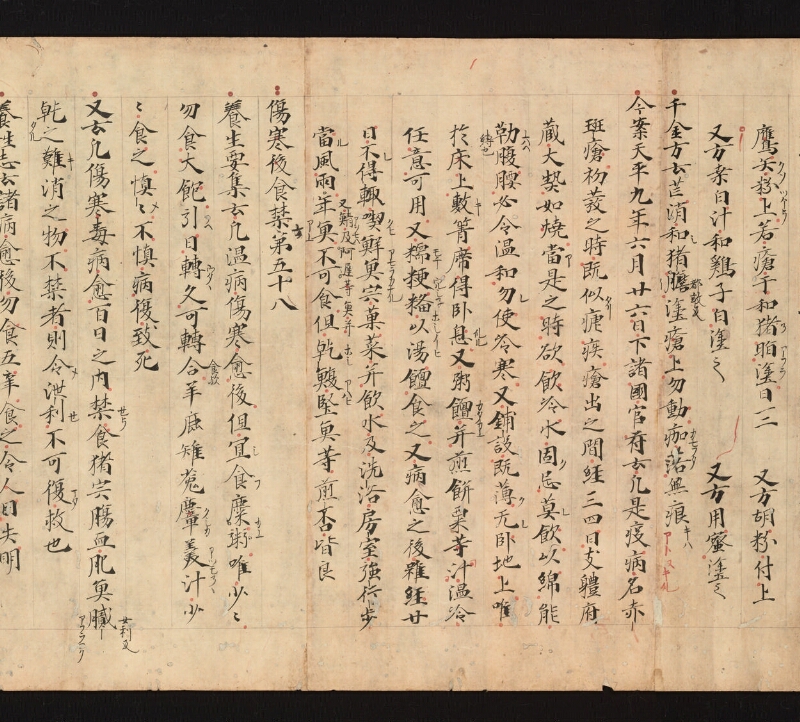 鷹矢粉上若瘡干和猪脂塗日一二　又方胡粉付上
又方桑白汁和鶏子白塗之　又方用蜜塗之
千金方云芒消和猪膽塗瘡上勿動痂落無痕
今案天平九年六月廿六日下諸國官符云凡是疫病名赤
斑瘡初發之時既似瘧疾瘡出之間經三四日支體府
蔵大𤍠如燒當是之時欲飲冷水固忌莫飲以綿能
勒腹腰必令温和勿使冷寒又鋪設既薄无卧地上唯
於床上敷簀席得卧息又粥饘并煎餅粟等汁温冷
任意可用又糯粳糒以湯饘食之又病愈之後雖經廿
日不得輙喫鮮魚宍菓菜并飲水及洗浴房室強行步
當風雨年魚不可食但乾鰒堅魚等煎否皆良
傷寒後食禁第五十八
養生要集云凡温病傷寒愈後但宜食糜粥唯少〻
勿食大飽引日轉久可轉合羊鹿雉菟麞羹汁少
〻食之慎〻不慎病復致死
又云凡傷寒毒病愈百日之內禁食猪宍腸血肥魚膩
乾之難消之物不禁者則令泄利不可復救也
養生志云諸病愈後勿食五辛食之令人目失明